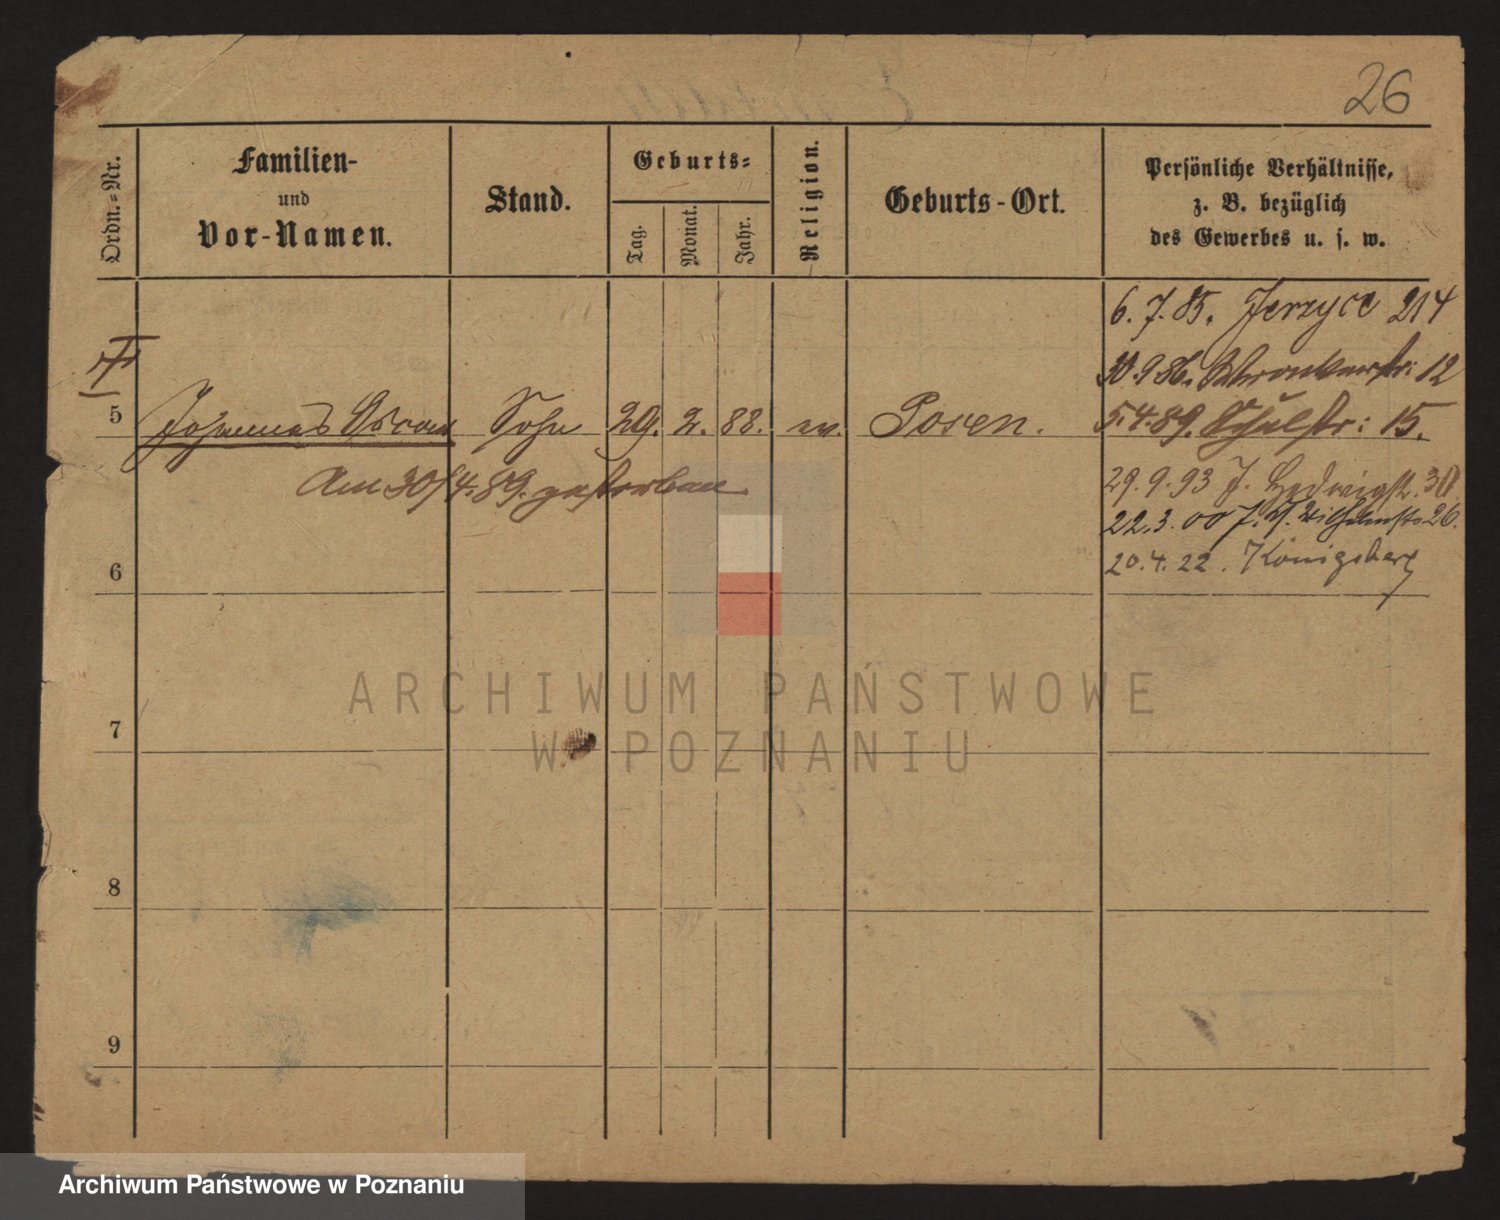 26
Ordn.-Nr.
Familien-
und
Vor-Namen.
Stand.
Geburts-
Tag.
Monat.
Jahr.
Religion.
Geburts-Ort.
Persönliche Verhältnisse,
z. B. bezüglich
des Gewerbes u. s. w.
6. 7. 85. Jerzyce 214
30. 9 86. Wronkerstr: 12
5 Johannes Oscar Sohn 29. 2. 88. ev. Posen. 5. 4. 89. Schulstr: 15.
Am 30/4. 89. gestorben
29. 9. 93 J. Hedwigstr. 30
22. 3. 00 J. Wilhelmstr 26.
20. 4. 22. Königsberg
6
7
8
9
ARCHIWUM PAŃSTWOWE
W POZNANIU
Archiwum Państwowe w Poznaniu